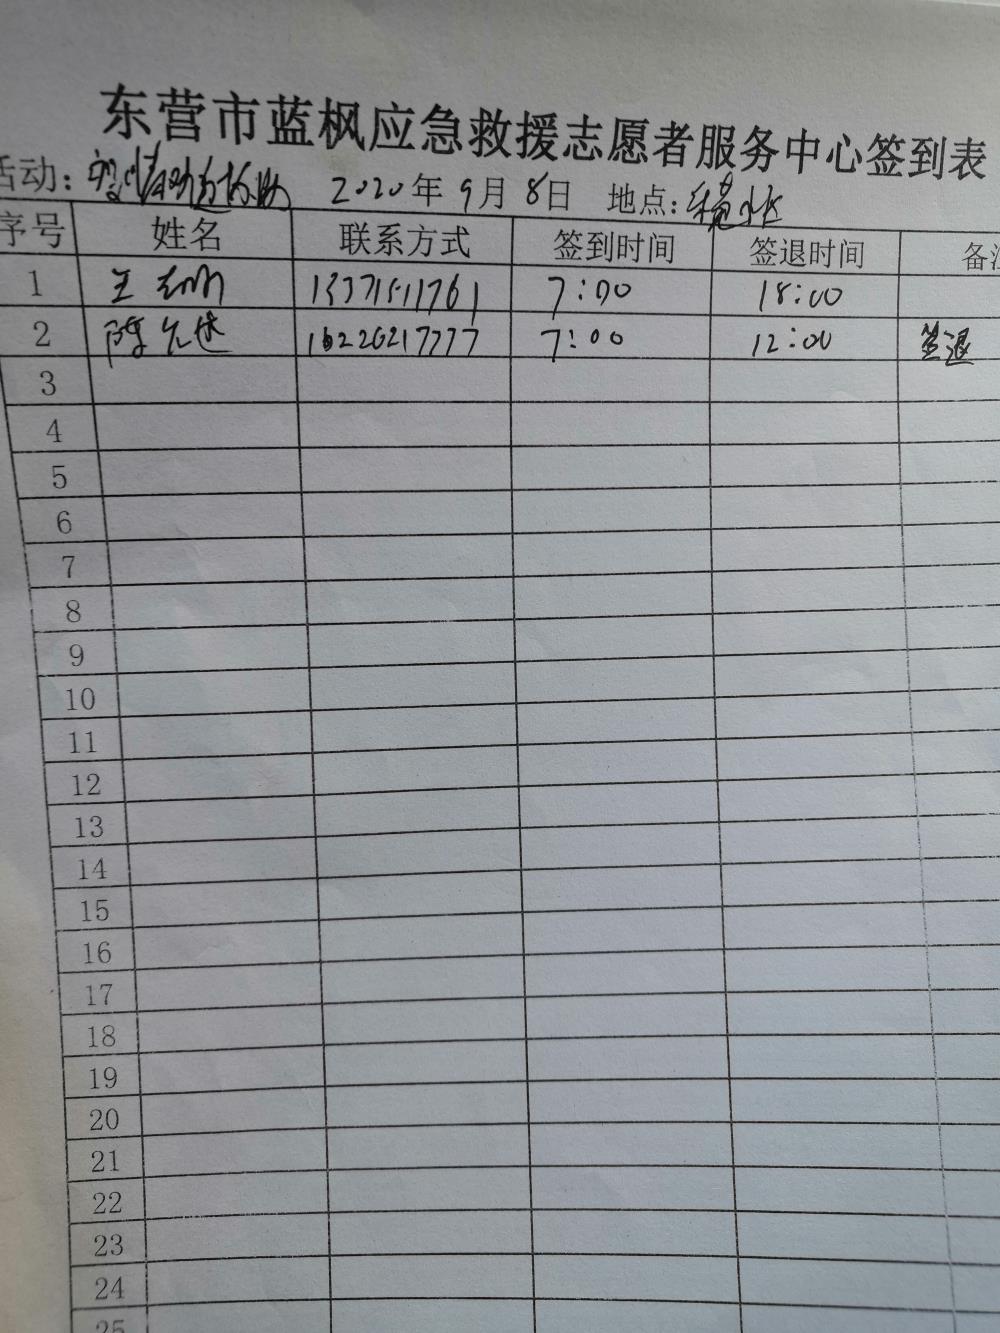 东营市蓝枫应急救援志愿者服务中心签到表
活动： 2020年9月8日 地点：
序号 姓名 联系方式 签到时间 签退时间 备注
1 王 7:00 18:00
2 陈 16226217777 7:00 12:00 签退
3
4
5
6
7
8
9
10
11
12
13
14
15
16
17
18
19
20
21
22
23
24
25